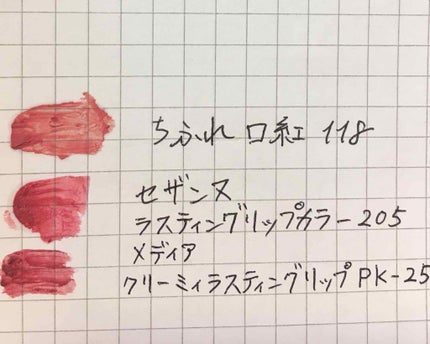 ちふれ 口紅 118
セザンヌ
ラスティングリップカラー205
メディア
クリーミィラスティングリップPK-25